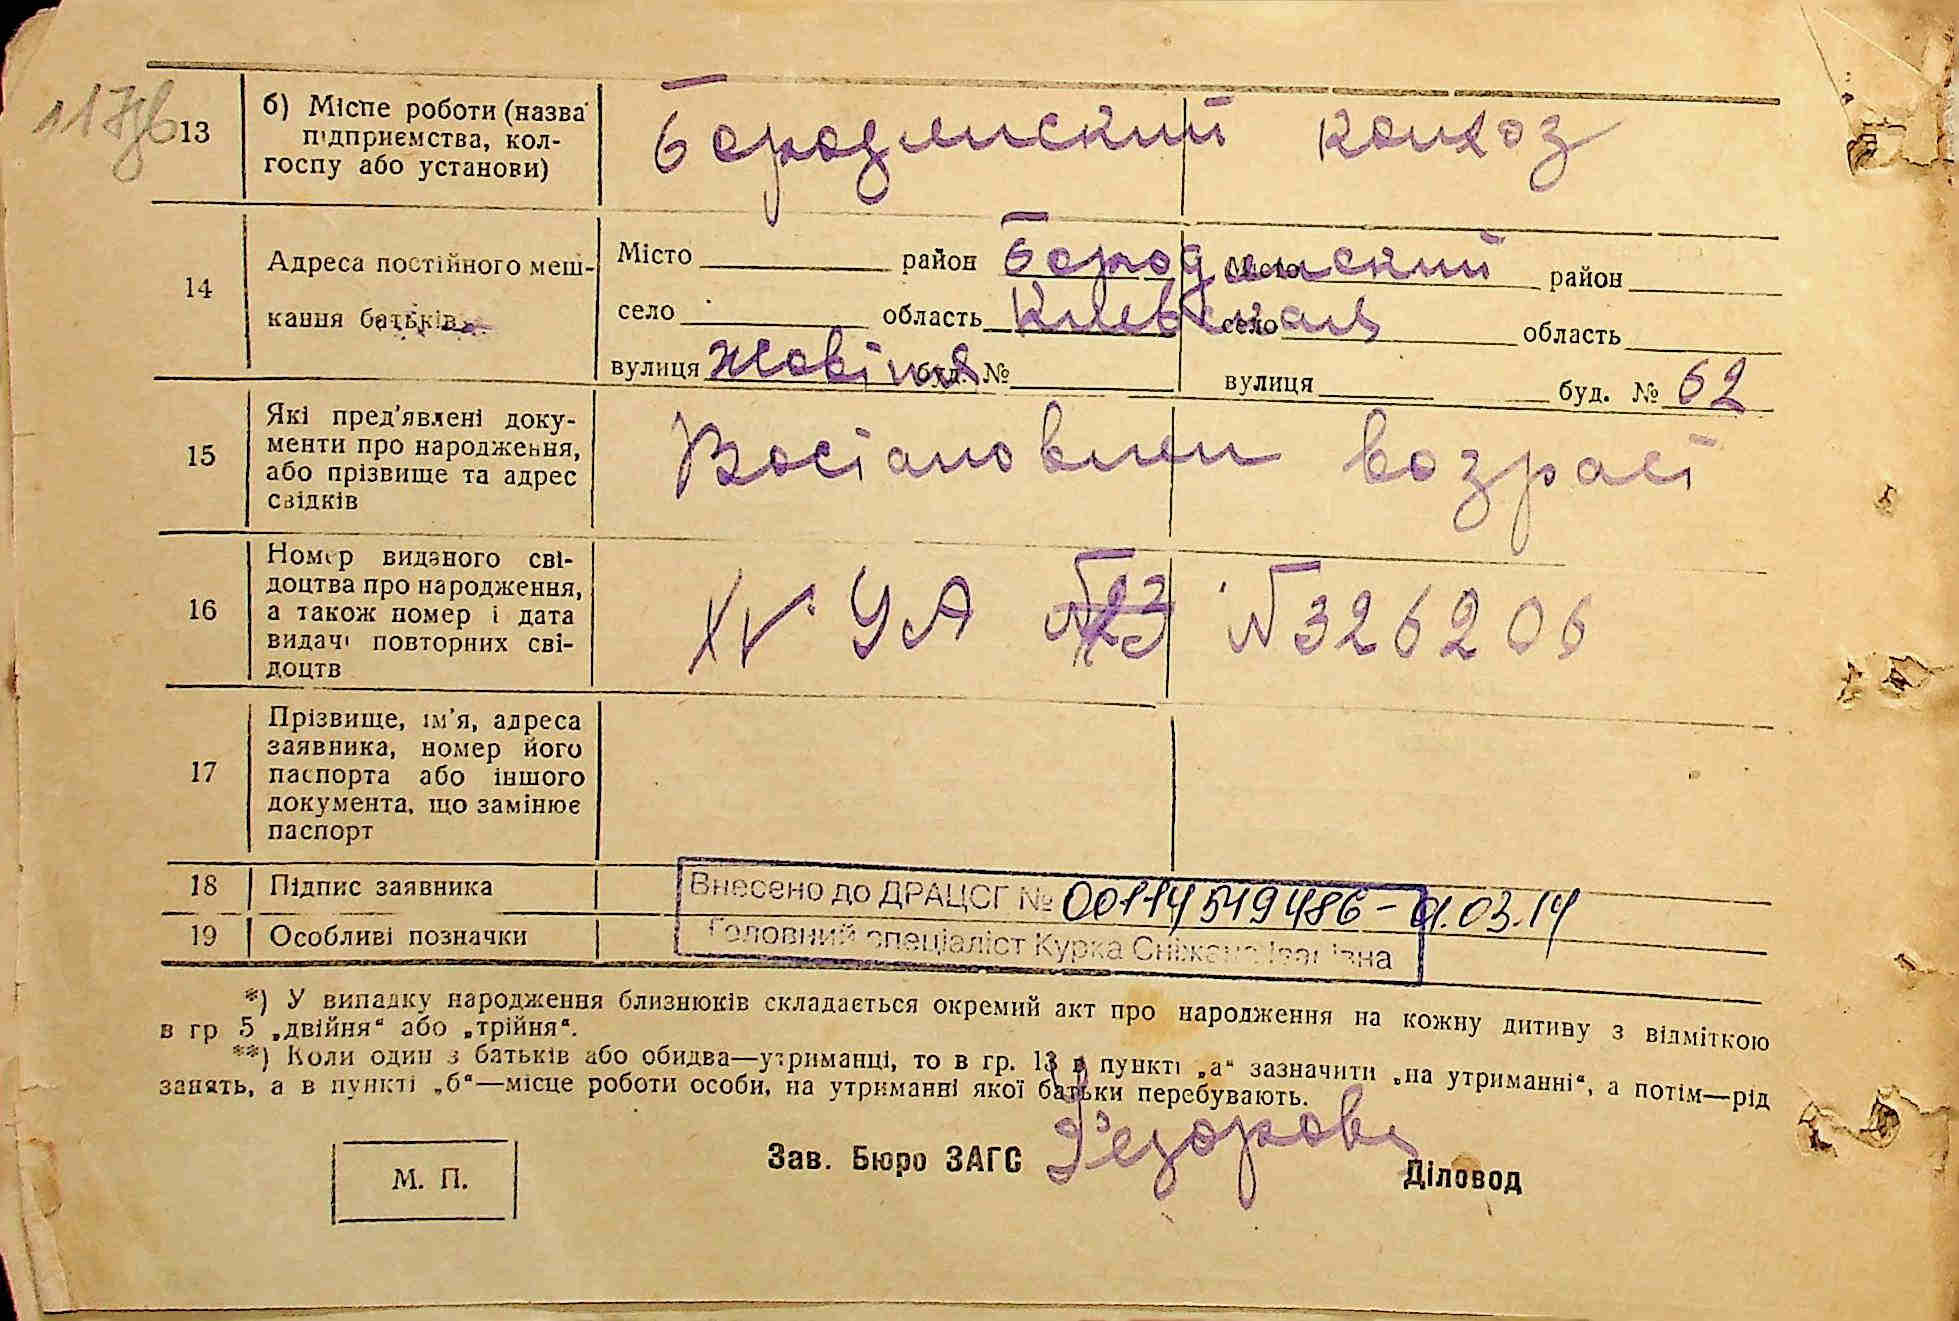 13
б) Місце роботи (назва
підприємства, кол-
госпу або установи)
Бородянский колхоз
14
Адреса постійного меш-
кання батьків
Місто район Бородянский Місто район
село область Киевская село область
вулиця Жовтня буд. № вулиця буд. № 62
15
Які пред’явлені доку-
менти про народження,
або прізвище та адрес
свідків
Востановлен возраст
16
Номер виданого сві-
доцтва про народження,
а також номер і дата
видачі повторних сві-
доцтв
XV УА №23 №326206
17
Прізвище, ім’я, адреса
заявника, номер його
паспорта або іншого
документа, що замінює
паспорт
18 Підпис заявника
Внесено до ДРАЦСГ № 00114519486 - 01.03.14
19 Особливі позначки
Головний спеціаліст Курка Сніжана Іванівна
*) У випадку народження близнюків складається окремий акт про народження на кожну дитину з відміткою
в гр 5 „двійня“ або „трійня“.
**) Коли один з батьків або обидва—утриманці, то в гр. 13 в пункті „а“ зазначити „на утриманні“, а потім—рід
занять, а в пункті „б“—місце роботи особи, на утриманні якої батьки перебувають.
М. П.
Зав. Бюро ЗАГС Федорова
Діловод